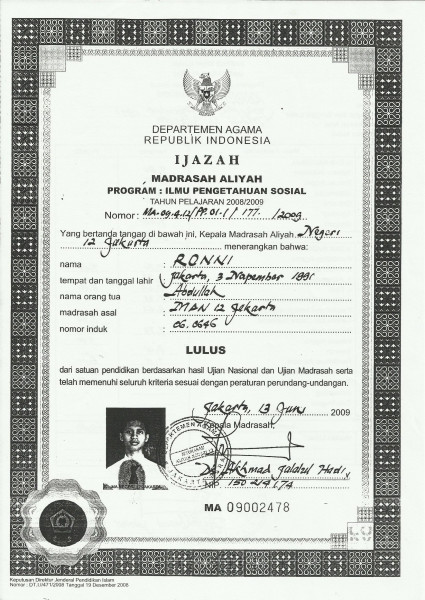 DEPARTEMEN AGAMA
REPUBLIK INDONESIA
IJAZAH
MADRASAH ALIYAH
PROGRAM : ILMU PENGETAHUAN SOSIAL
TAHUN PELAJARAN 2008/2009
Nomor : MA.09.4.12/PP.01.1/ 177. /2009
Yang bertanda tangan di bawah ini, Kepala Madrasah Aliyah Negeri
12 Jakarta menerangkan bahwa:
nama : RONNI
tempat dan tanggal lahir : Jakarta, 3 Nopember 1991
nama orang tua : Abdullah
madrasah asal : MAN 12 Jakarta
nomor induk : 06.0646
LULUS
dari satuan pendidikan berdasarkan hasil Ujian Nasional dan Ujian Madrasah serta
telah memenuhi seluruh kriteria sesuai dengan peraturan perundang-undangan.
Jakarta, 13 Juni 2009
Kepala Madrasah,
Akhmad
NIP.
MA 09002478
Keputusan Direktur Jenderal Pendidikan Islam
Tanggal 19 Desember 2008